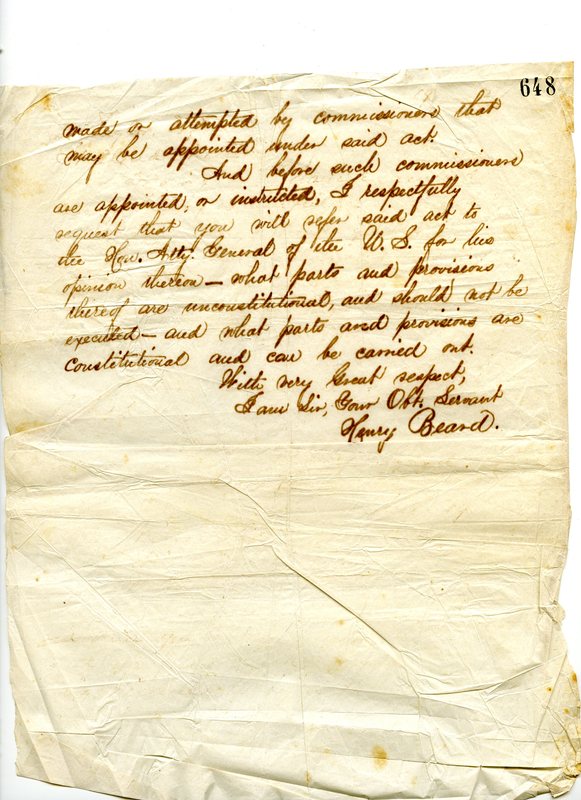 648
made or attempted by commissioners that
may be appointed under said act.
And before such commissioners
are appointed, or instructed, I respectfully
request that you will refer said act to
the Hon. Atty. General of the U. S. for his
opinion thereon — what parts and provisions
thereof are unconstitutional, and should not be
executed — and what parts and provisions are
constitutional and can be carried out.
With very Great respect,
I am Sir, Your Obt. Servant
Henry Beard.